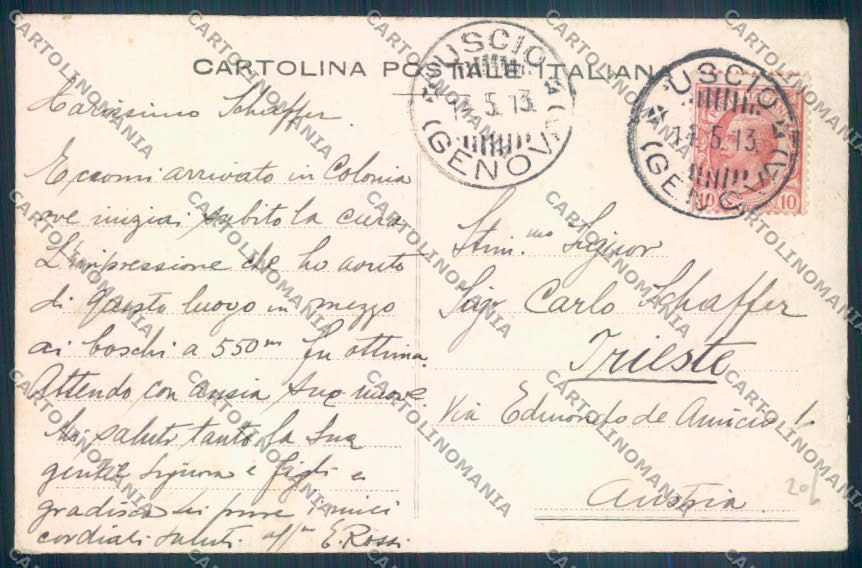 CARTOLINA POSTALE ITALIANA
USCIO
13.5.13
(GENOVA)
USCIO
14.5.13
(GENOVA)
10 10
Carissimo Schaffer.
Eccomi arrivato in Colonia
ove iniziai subito la cura
L'impressione che ho avuto
di questo luogo in mezzo
ai boschi a 550m fu ottima.
Attendo con ansia sue nuove.
Mi saluti tanto la Sua
gentil Signora e figli e
gradisca Lei pure i miei
cordiali saluti aff.mo E. Rossi
Stim.mo Signor
Sig. Carlo Schaffer
Trieste
Via Edmondo de Amicis
Austria
CARTOLINOMANIA